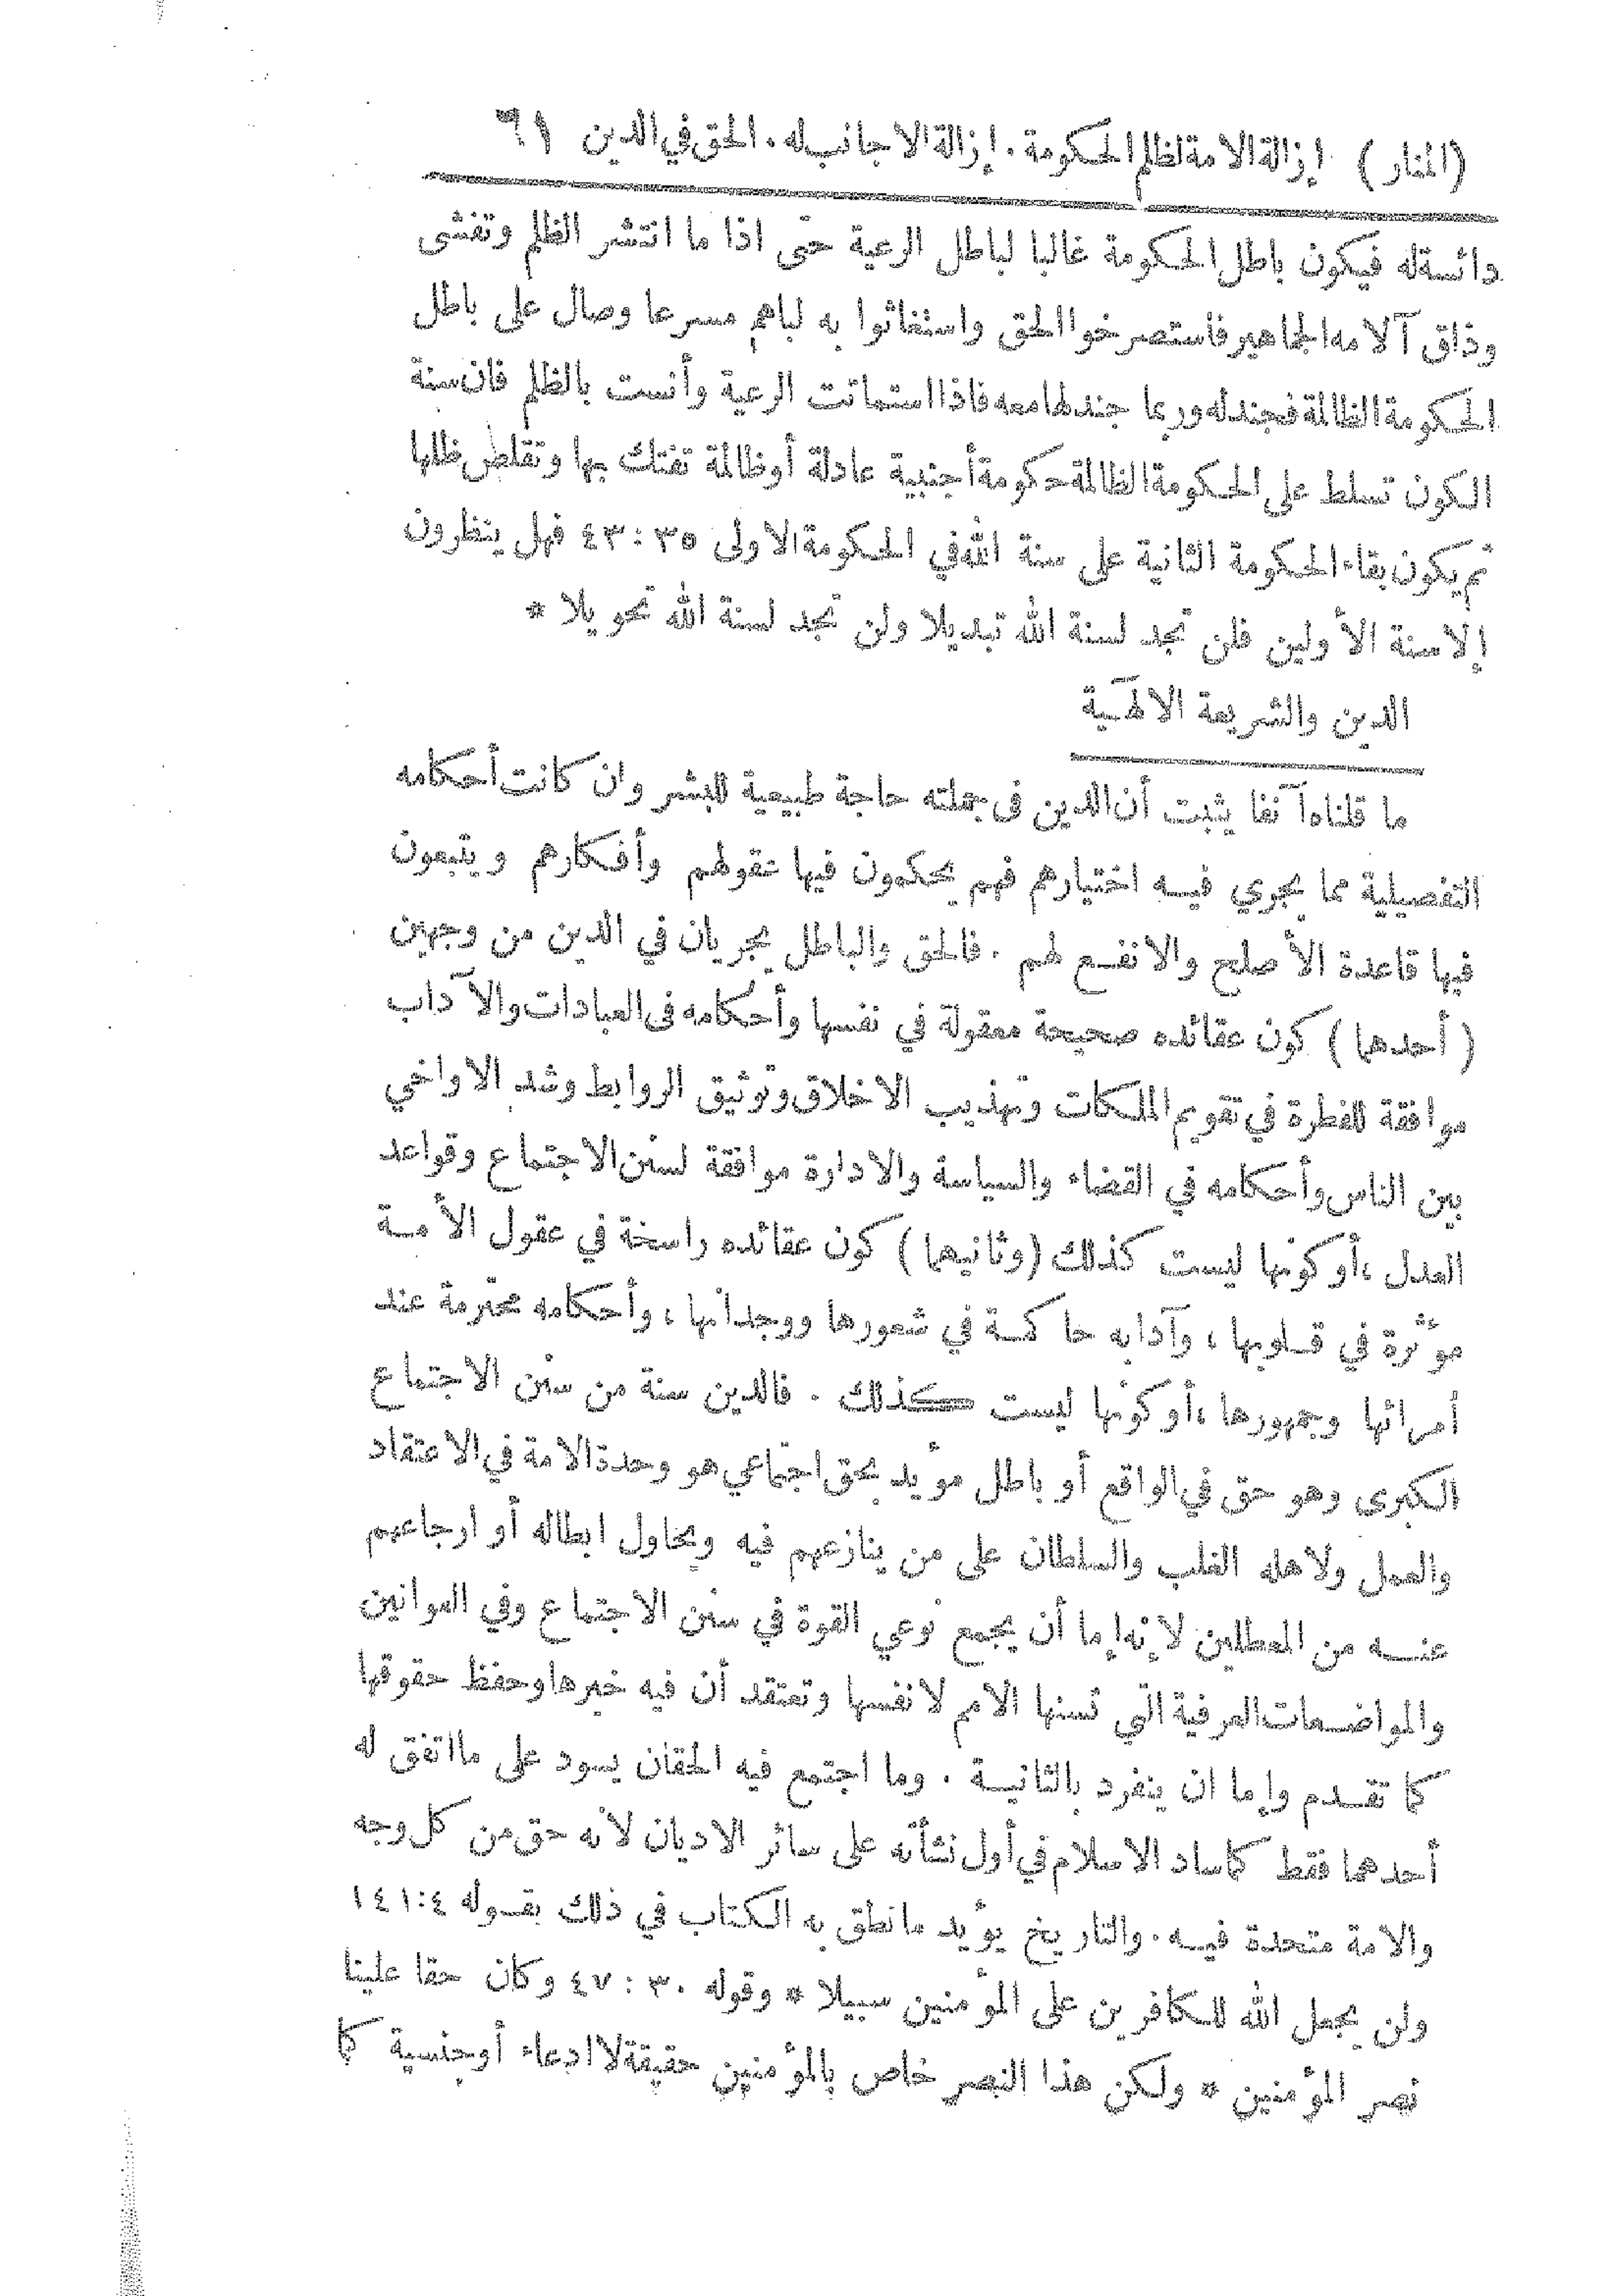 (المنار) إزالة الامة لظلم الحكومة . إزالة الاجانب له . الحق في الدين ٦١
دائسة له فيكون باطل الحكومة غالبا لباطل الرعية حتى اذا ما انتشر الظلم وتفشى
وذاق آلامه الجماهير فاستصرخوا الحق واستغاثوا به لباهم مسرعا وصال على باطل
الحكومة الظالمة فجند له وربما جندها معه فاذا استماتت الرعية وأنست بالظلم فان سنة
الكون تسلط على الحكومة الظالمة حكومة أجنبية عادلة أو ظالمة تفتك بها وتقلص ظلها
ثم يكون بقاء الحكومة الثانية على سنة الله في الحكومة الاولى ٣٥ : ٤٣ فهل ينظرون
إلا سنة الأولين فلن تجد لسنة الله تبديلا ولن تجد لسنة الله تحويلا *
الدين والشريعة الالهَية
ما قلناه آنفا يثبت أن الدين فى جملته حاجة طبيعية للبشر وان كانت أحكامه
التفصيلية مما يجري فيه اختيارهم فهم يحكمون فيها عقولهم وأفكارهم ويتبعون
فيها قاعدة الأصلح والانفع لهم . فالحق والباطل يجريان في الدين من وجهين
(أحدهما) كون عقائده صحيحة معقولة في نفسها وأحكامه فى العبادات والآداب
موافقة للفطرة في تقويم الملكات وتهذيب الاخلاق وتوثيق الروابط وشد الاواخي
بين الناس وأحكامه في القضاء والسياسة والادارة موافقة لسنن الاجتماع وقواعد
العدل ، أو كونها ليست كذلك (وثانيهما) كون عقائده راسخة في عقول الأمة
مؤثرة في قلوبها ، وآدابه حاكمة في شعورها ووجدانها ، وأحكامه محترمة عند
أمرائها وجمهورها ، أو كونها ليست كذلك . فالدين سنة من سنن الاجتماع
الكبرى وهو حق في الواقع أو باطل مؤيد بحق اجتماعي هو وحدة الامة في الاعتقاد
والعمل ولاهله الغلب والسلطان على من ينازعهم فيه ويحاول ابطاله أو ارجاعهم
عنه من المعطلين لإنه إما أن يجمع نوعي القوة في سنن الاجتماع وفي القوانين
والمواضعات العرفية التي تسنها الامم لانفسها وتعتقد أن فيه خيرها وحفظ حقوقها
كما تقدم وإما ان ينفرد بالثانية . وما اجتمع فيه الحقان يسود على ما اتفق له
أحدهما فقط كما ساد الاسلام في أول نشأته على سائر الاديان لأنه حق من كل وجه
والامة متحدة فيه . والتاريخ يؤيد ما نطق به الكتاب في ذلك بقوله ٤ : ١٤١
ولن يجعل الله للكافرين على المؤمنين سبيلا * وقوله ٣٠ : ٤٧ وكان حقا علينا
نصر المؤمنين * ولكن هذا النصر خاص بالمؤمنين حقيقة لا ادعاء أو جنسية كما